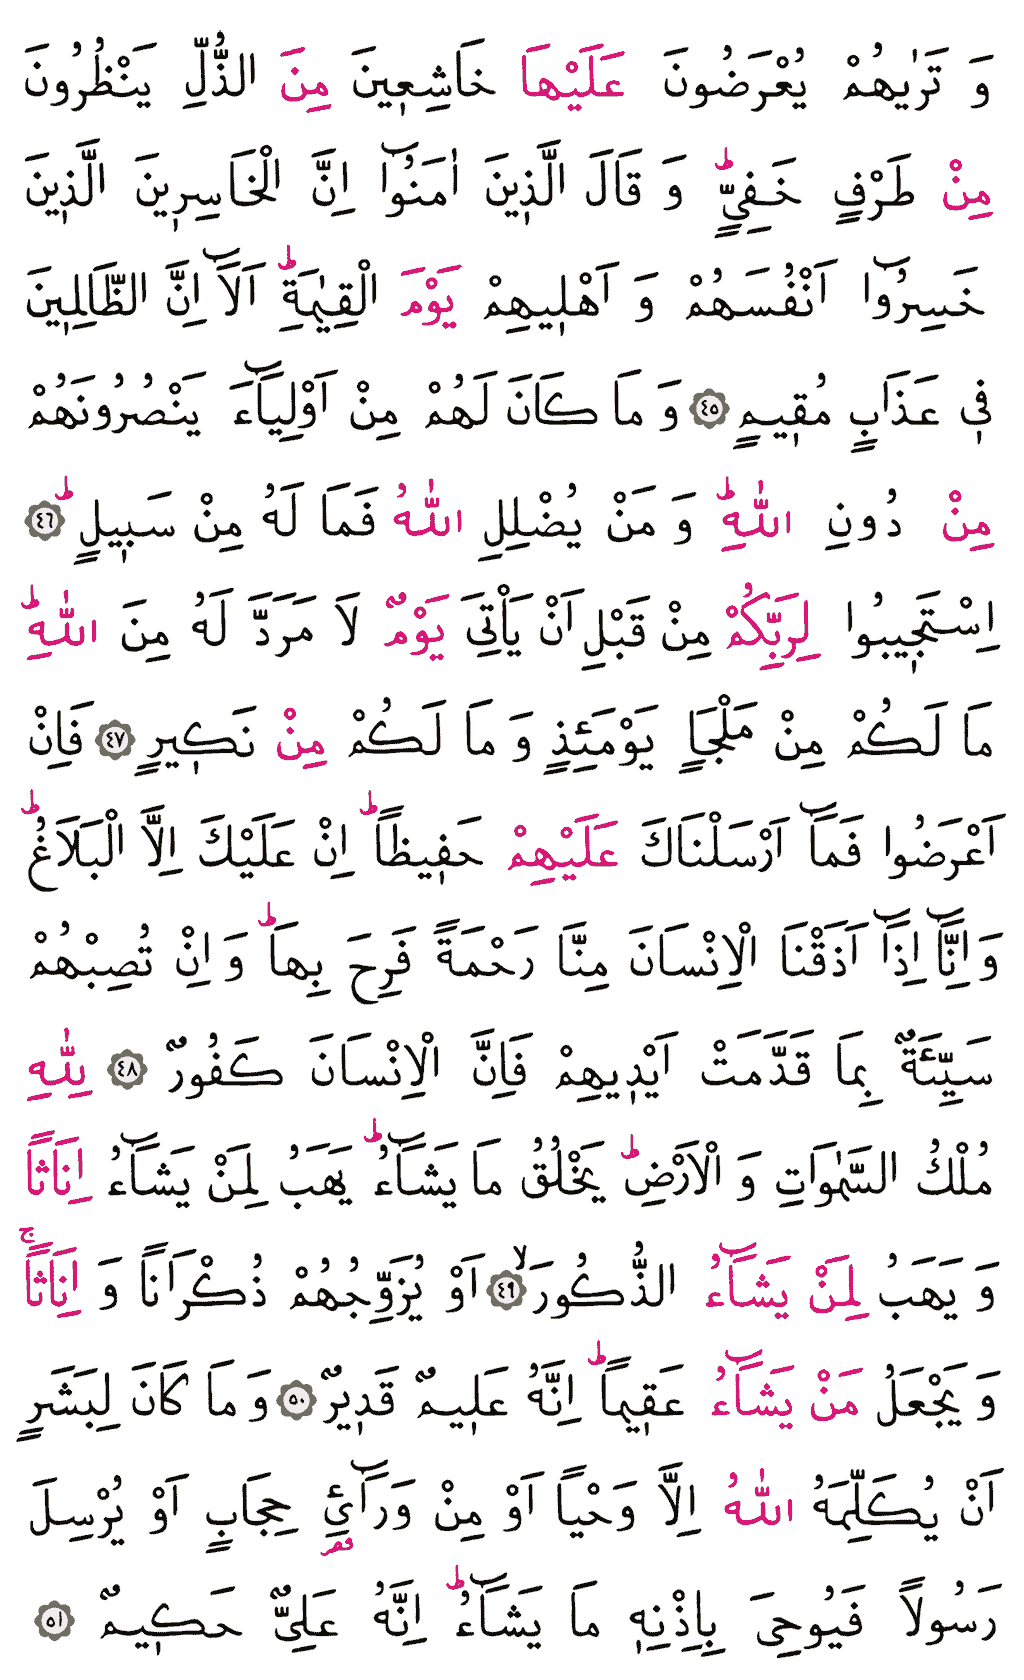 وَ تَرٰيهُمْ يُعْرَضُونَ عَلَيْهَا خَاشِعٖينَ مِنَ الذُّلِّ يَنْظُرُونَ
مِنْ طَرْفٍ خَفِيٍّؕ وَ قَالَ الَّذٖينَ اٰمَنُٓوا اِنَّ الْخَاسِرٖينَ الَّذٖينَ
خَسِرُٓوا اَنْفُسَهُمْ وَ اَهْلٖيهِمْ يَوْمَ الْقِيٰمَةِؕ اَلَٓا اِنَّ الظَّالِمٖينَ
فٖي عَذَابٍ مُقٖيمٍ ﴿٤٥﴾ وَ مَا كَانَ لَهُمْ مِنْ اَوْلِيَٓاءَ يَنْصُرُونَهُمْ
مِنْ دُونِ اللّٰهِؕ وَ مَنْ يُضْلِلِ اللّٰهُ فَمَا لَهُ مِنْ سَبٖيلٍؕ ﴿٤٦﴾
اِسْتَجٖيبُوا لِرَبِّكُمْ مِنْ قَبْلِ اَنْ يَأْتِيَ يَوْمٌ لَا مَرَدَّ لَهُ مِنَ اللّٰهِؕ
مَا لَكُمْ مِنْ مَلْجَاٍ يَوْمَئِذٍ وَ مَا لَكُمْ مِنْ نَكٖيرٍ ﴿٤٧﴾ فَاِنْ
اَعْرَضُوا فَمَٓا اَرْسَلْنَاكَ عَلَيْهِمْ حَفٖيظاًؕ اِنْ عَلَيْكَ اِلَّا الْبَلَاغُؕ
وَ اِنَّٓا اِذَٓا اَذَقْنَا الْاِنْسَانَ مِنَّا رَحْمَةً فَرِحَ بِهَاؕ وَ اِنْ تُصِبْهُمْ
سَيِّئَةٌ بِمَا قَدَّمَتْ اَيْدٖيهِمْ فَاِنَّ الْاِنْسَانَ كَفُورٌ ﴿٤٨﴾ لِلّٰهِ
مُلْكُ السَّمٰوَاتِ وَ الْاَرْضِؕ يَخْلُقُ مَا يَشَٓاءُؕ يَهَبُ لِمَنْ يَشَٓاءُ اِنَاثاً
وَ يَهَبُ لِمَنْ يَشَٓاءُ الذُّكُورَۙ ﴿٤٩﴾ اَوْ يُزَوِّجُهُمْ ذُكْرَاناً وَ اِنَاثاًۚ
وَ يَجْعَلُ مَنْ يَشَٓاءُ عَقٖيماًؕ اِنَّهُ عَلٖيمٌ قَدٖيرٌ ﴿٥٠﴾ وَ مَا كَانَ لِبَشَرٍ
اَنْ يُكَلِّمَهُ اللّٰهُ اِلَّا وَحْياً اَوْ مِنْ وَرَٓائِ۬ حِجَابٍ اَوْ يُرْسِلَ
رَسُولاً فَيُوحِيَ بِاِذْنِهٖ مَا يَشَٓاءُؕ اِنَّهُ عَلِيٌّ حَكٖيمٌ ﴿٥١﴾